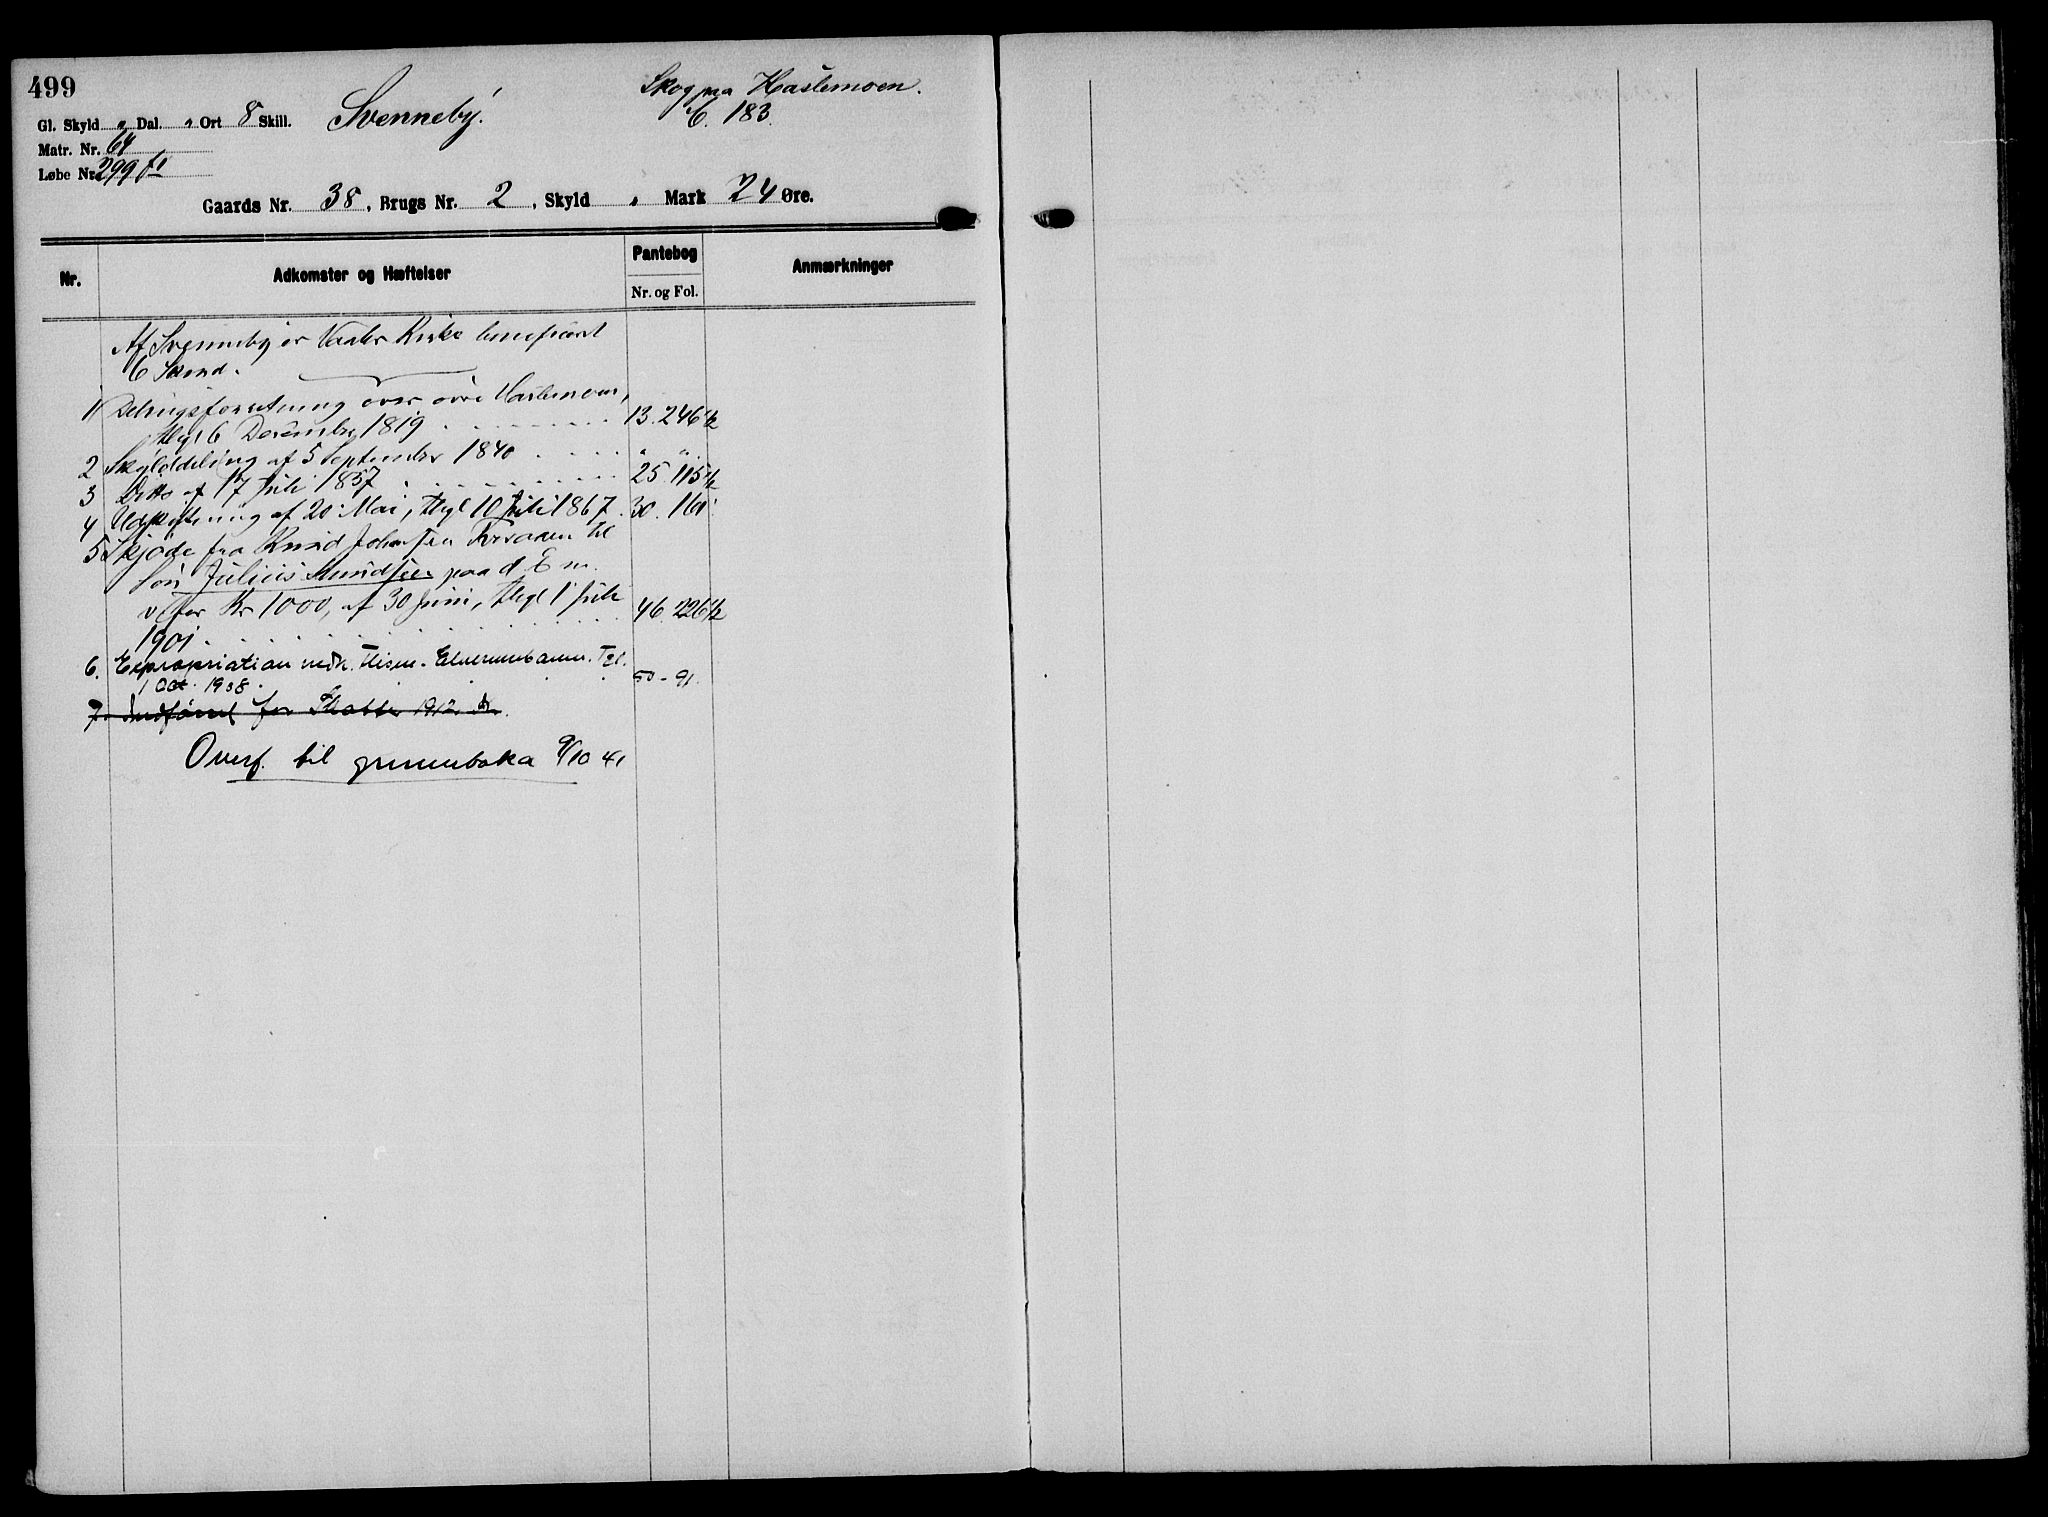 499
Gl. Skyld " Dal. " Ort 8 Skill. Svenneby. Skog paa Haslemoen.
C. 183.
Matr. Nr. 64
Løbe Nr. 299 f1
Gaards Nr. 38, Brugs Nr. 2, Skyld " Mark 24 Øre.
Nr. Adkomster og Hæftelser Pantebog Anmærkninger
Nr. og Fol.
Af Svenneby er Vaaler Kirke beneficeret
6 Skind.
1 Delingsforretning over øvre Haslemoen,
thgl 6 December 1819 13. 246 1/2
2 Skylddeling af 5 September 1840 " "
3 Ditto af 17 Juli 1857 25. 115 1/2
4 Udskiftning af 20 Mai, thgl 10 Juli 1867. 30. 161
5 Skjøde fra Knud Johnsen til
Søn Julius Knudsen paa d. E m.
v. for Kr 1000, af 30 Juni, thgl 1 Juli
1901 46. 226 1/2
6. Expropriation vedk. Flisen - Elverumbanen. Tgl.
1 Oct. 1908. 50 - 91.
7. Indførsel for Skatter 1912
Overf. til grunnboka 9/10 41